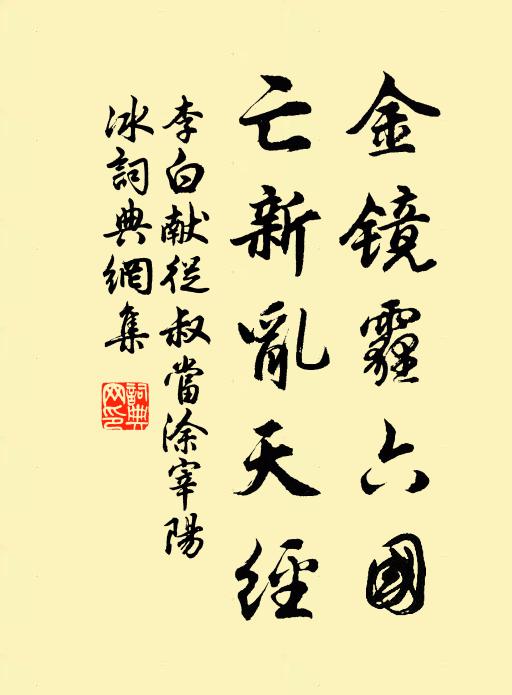 金镜霾六國
亡新亂天經
李白献從叔當涂宰陽
冰詞典網集
詞典网印